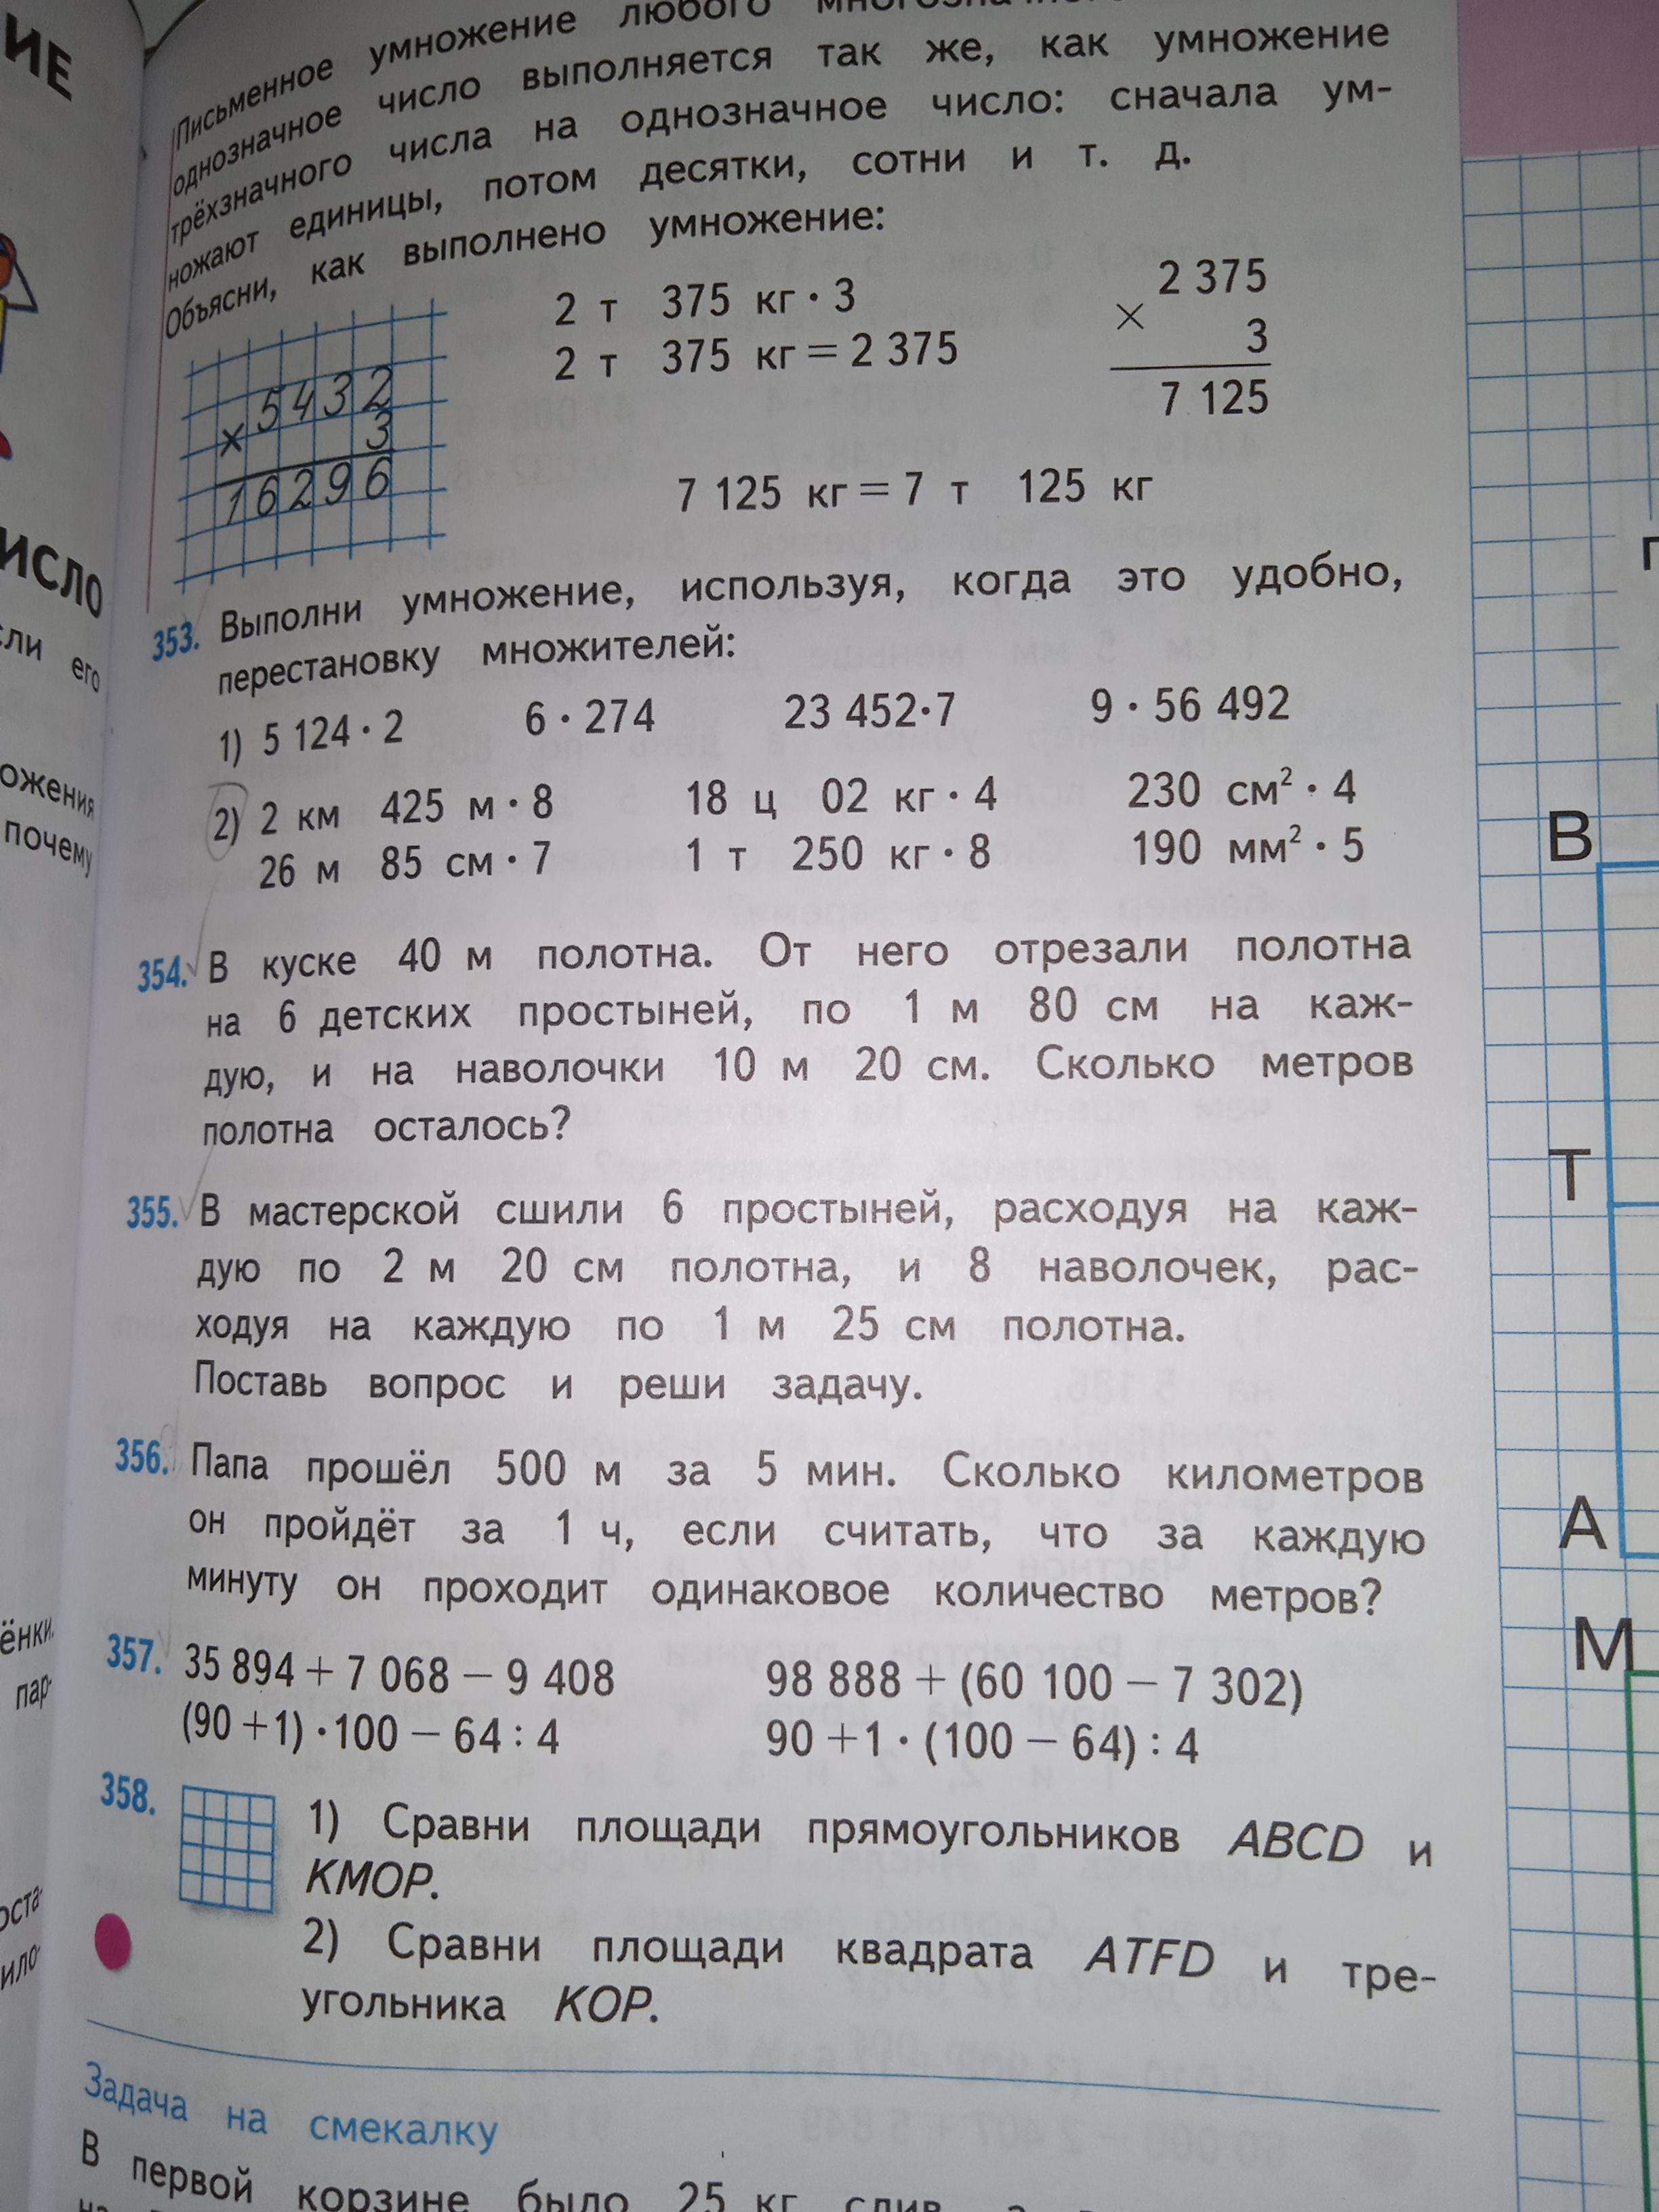 ИЕ
ИСЛО
его
ожения
почему
Письменное умножение любого
однозначное число выполняется так же, как умножение
трёхзначного числа на однозначное число: сначала ум-
ножают единицы, потом десятки, сотни и т. д.
Объясни, как выполнено умножение:
5432
×
3
16296
2 т 375 кг · 3
2 т 375 кг = 2 375
2 375
×
3
7 125
7 125 кг = 7 т 125 кг
353. Выполни умножение, используя, когда это удобно,
перестановку множителей:
1) 5 124 · 2 6 · 274 23 452·7 9 · 56 492
2) 2 км 425 м · 8 18 ц 02 кг · 4 230 см² · 4
26 м 85 см · 7 1 т 250 кг · 8 190 мм² · 5
354. В куске 40 м полотна. От него отрезали полотна
на 6 детских простыней, по 1 м 80 см на каж-
дую, и на наволочки 10 м 20 см. Сколько метров
полотна осталось?
355. В мастерской сшили 6 простыней, расходуя на каж-
дую по 2 м 20 см полотна, и 8 наволочек, рас-
ходуя на каждую по 1 м 25 см полотна.
Поставь вопрос и реши задачу.
356. Папа прошёл 500 м за 5 мин. Сколько километров
он пройдёт за 1 ч, если считать, что за каждую
минуту он проходит одинаковое количество метров?
357. 35 894 + 7 068 − 9 408 98 888 + (60 100 − 7 302)
(90 + 1) · 100 − 64 : 4 90 + 1 · (100 − 64) : 4
358. 1) Сравни площади прямоугольников ABCD и
KMOP.
2) Сравни площади квадрата ATFD и тре-
угольника KOP.
Задача на смекалку
В первой корзине было 25 кг слив
B
T
A
M